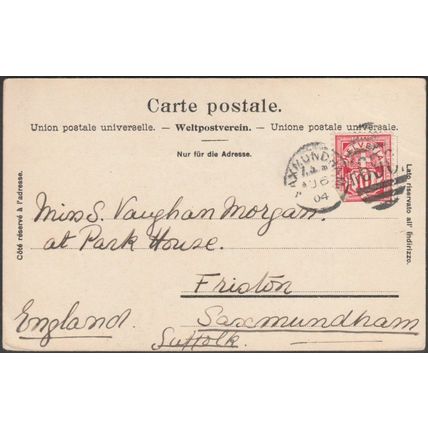 Carte postale.
Union postale universelle. – Weltpostverein. – Unione postale universale.
Nur für die Adresse.
Côté réservé à l'adresse.
Lato riservato all' indirizzo.
HELVETIA
10
04
Miss S. Vaughan Morgan.
at Park House.
Friston
Saxmundham
England.
Suffolk.